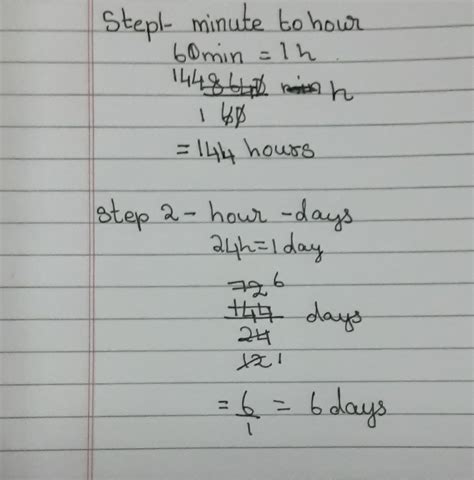 Step1- minute to hour
60min = 1h
144 8640 min h
1 60
= 144 hours
Step 2 - hour - days
24h = 1 day
72 6
144 days
24
12 1
= 6 = 6 days
1